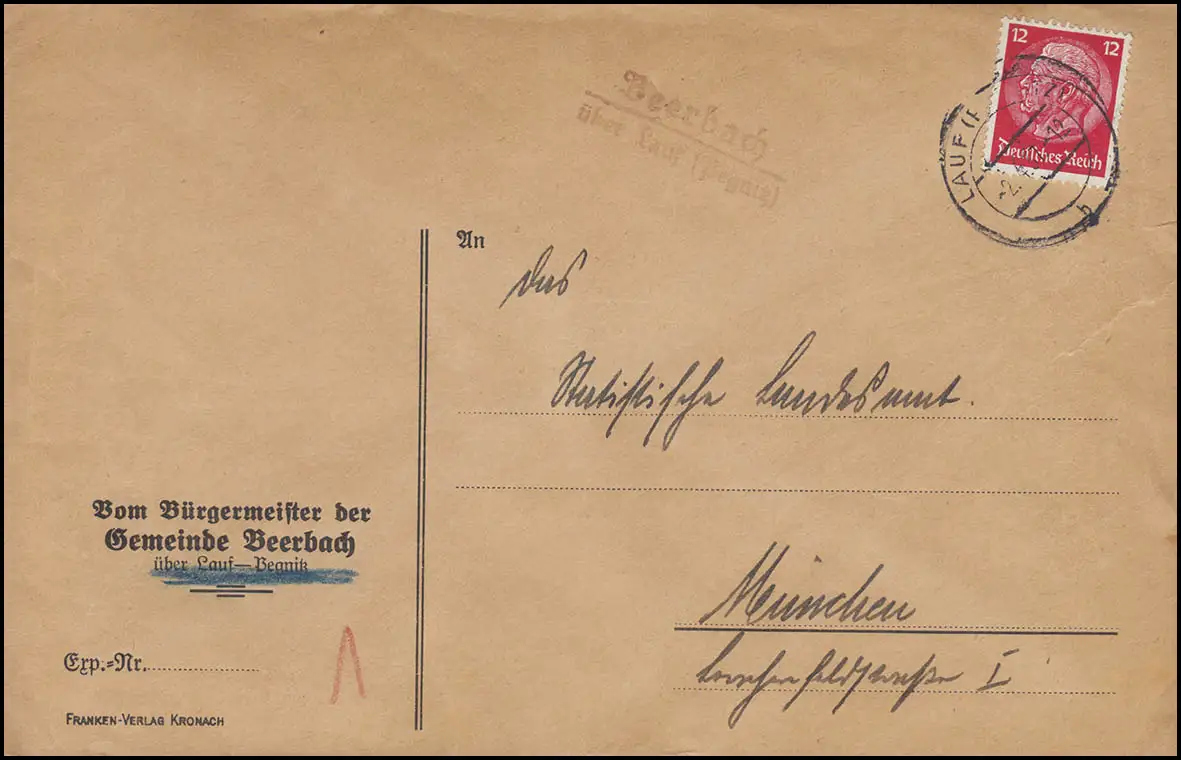 12 12
Deutsches Reich
LAUF (P
Beerbach
über Lauf (Pegnitz)
An
das
Statistische Landesamt.
München
I
Vom Bürgermeister der
Gemeinde Beerbach
über Lauf—Pegnitz
Exp.=Nr.
FRANKEN-VERLAG KRONACH